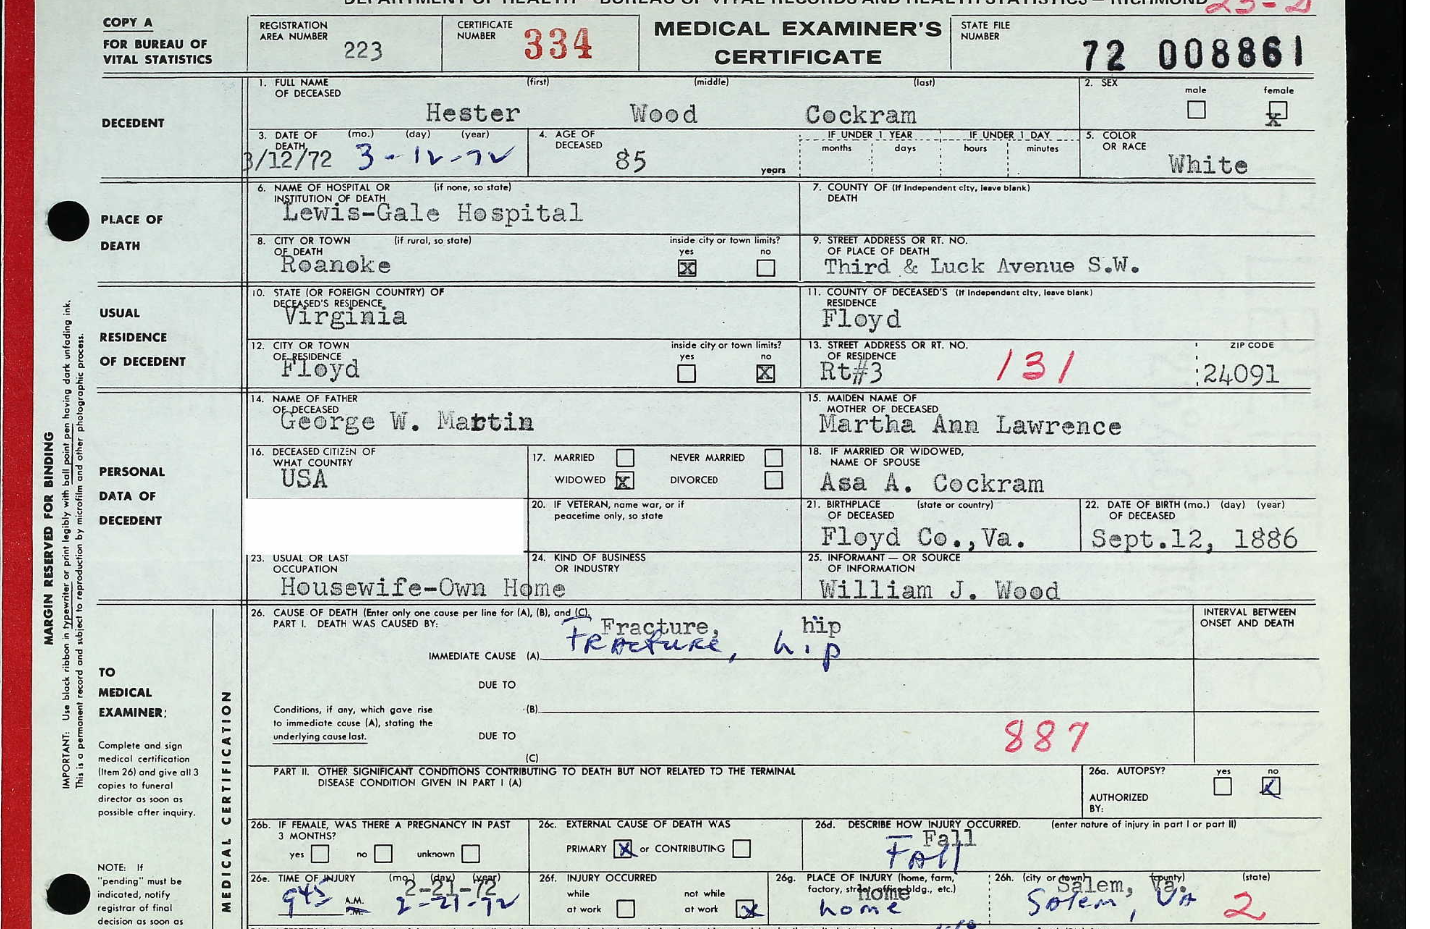 DEPARTMENT OF HEALTH - BUREAU OF VITAL RECORDS AND HEALTH STATISTICS - RICHMOND 23-2
COPY A
FOR BUREAU OF
VITAL STATISTICS
REGISTRATION
AREA NUMBER 223
CERTIFICATE
NUMBER 334
MEDICAL EXAMINER'S
CERTIFICATE
STATE FILE
NUMBER
72 008861
DECEDENT
1. FULL NAME (first) (middle) (last)
OF DECEASED
Hester Wood Cockram
2. SEX
male female
x
3. DATE OF (mo.) (day) (year)
DEATH
3/12/72 3-12-72
4. AGE OF
DECEASED
85
years
IF UNDER 1 YEAR IF UNDER 1 DAY
months days hours minutes
5. COLOR
OR RACE
White
PLACE OF
DEATH
6. NAME OF HOSPITAL OR (if none, so state)
INSTITUTION OF DEATH
Lewis-Gale Hospital
7. COUNTY OF (If independent city, leave blank)
DEATH
8. CITY OR TOWN (if rural, so state) inside city or town limits?
OF DEATH yes no
Roanoke x
9. STREET ADDRESS OR RT. NO.
OF PLACE OF DEATH
Third & Luck Avenue S.W.
USUAL
RESIDENCE
OF DECEDENT
10. STATE (OR FOREIGN COUNTRY) OF
DECEASED'S RESIDENCE
Virginia
11. COUNTY OF DECEASED'S (If independent city, leave blank)
RESIDENCE
Floyd
12. CITY OR TOWN inside city or town limits?
OF RESIDENCE yes no
Floyd x
13. STREET ADDRESS OR RT. NO. ZIP CODE
OF RESIDENCE
Rt#3 131 24091
PERSONAL
DATA OF
DECEDENT
14. NAME OF FATHER
OF DECEASED
George W. Martin
15. MAIDEN NAME OF
MOTHER OF DECEASED
Martha Ann Lawrence
16. DECEASED CITIZEN OF
WHAT COUNTRY
USA
17. MARRIED NEVER MARRIED
WIDOWED x DIVORCED
18. IF MARRIED OR WIDOWED,
NAME OF SPOUSE
Asa A. Cockram
20. IF VETERAN, name war, or if
peacetime only, so state
21. BIRTHPLACE (state or country)
OF DECEASED
Floyd Co.,Va.
22. DATE OF BIRTH (mo.) (day) (year)
OF DECEASED
Sept.12, 1886
23. USUAL OR LAST
OCCUPATION
Housewife-Own Home
24. KIND OF BUSINESS
OR INDUSTRY
25. INFORMANT - OR SOURCE
OF INFORMATION
William J. Wood
MARGIN RESERVED FOR BINDING
IMPORTANT: Use black ribbon in typewriter or print legibly with ball point pen having dark unfading ink.
This is a permanent record and subject to reproduction by microfilm and other photographic process.
TO
MEDICAL
EXAMINER:
Complete and sign
medical certification
(Item 26) and give all 3
copies to funeral
director as soon as
possible after inquiry.
NOTE: If
"pending" must be
indicated, notify
registrar of final
decision as soon as
MEDICAL CERTIFICATION
26. CAUSE OF DEATH (Enter only one cause per line for (A), (B), and (C).
PART I. DEATH WAS CAUSED BY:
INTERVAL BETWEEN
ONSET AND DEATH
Fracture, hip
IMMEDIATE CAUSE (A) Fracture, hip
DUE TO
Conditions, if any, which gave rise (B)
to immediate cause (A), stating the
underlying cause last. DUE TO
887
(C)
PART II. OTHER SIGNIFICANT CONDITIONS CONTRIBUTING TO DEATH BUT NOT RELATED TO THE TERMINAL
DISEASE CONDITION GIVEN IN PART I (A)
26a. AUTOPSY? yes no
x
AUTHORIZED
BY:
26b. IF FEMALE, WAS THERE A PREGNANCY IN PAST
3 MONTHS?
yes no unknown
26c. EXTERNAL CAUSE OF DEATH WAS
PRIMARY x or CONTRIBUTING
26d. DESCRIBE HOW INJURY OCCURRED. (enter nature of injury in part I or part II)
Fall
Fall
26e. TIME OF INJURY (mo.) (day) (year)
2-21-72
945 A.M. 2-21-72
26f. INJURY OCCURRED
while not while
at work at work x
26g. PLACE OF INJURY (home, farm,
factory, street, office bldg., etc.)
home
home
26h. (city or town) (county) (state)
Salem, Va.
Salem, VA 2